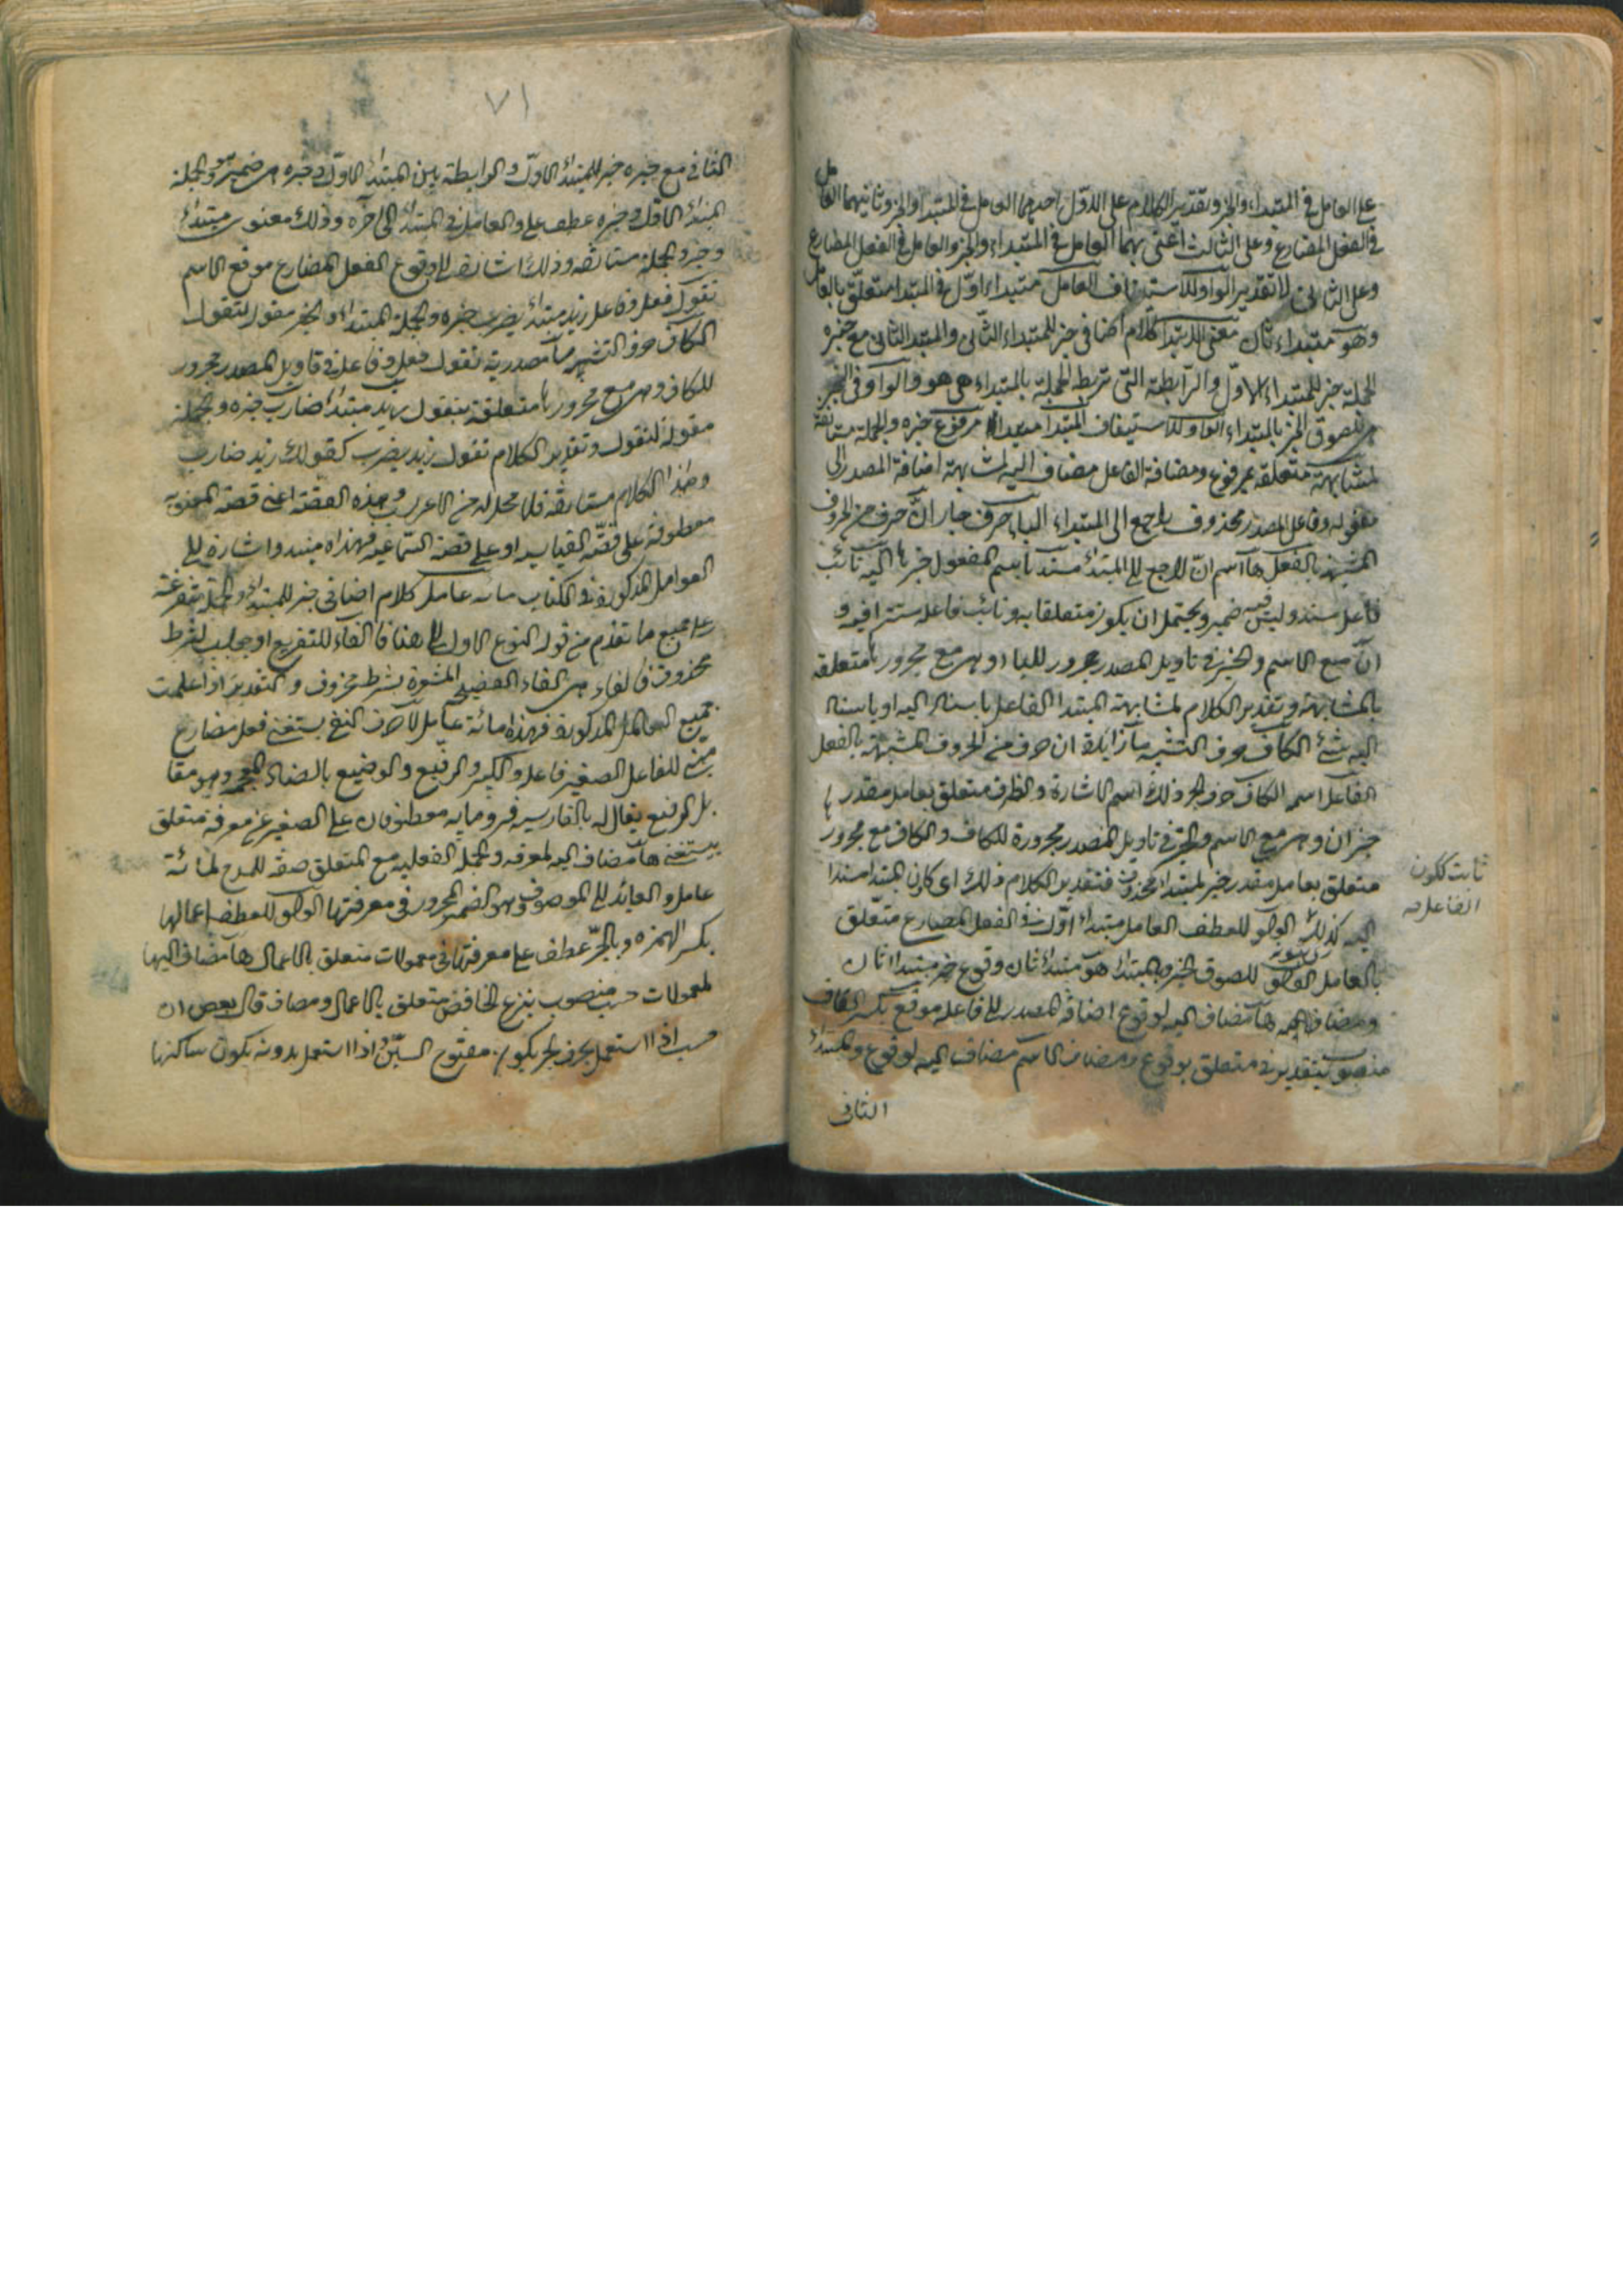 على العامل في المبتداء والخبر وتقدير الكلام على الاول احدهما العامل في المبتدا والخبر وثانيهما العامل
في الفعل المضارع وعلى الثالث اعنى بهما العامل في المبتداء والخبر والعامل في الفعل المضارع
وعلى الثانى لا تقدير الواو للاستيناف العامل مبتداء اوّل في المبتدا متعلّق بالعامل
وهو مبتداء ثان معنى الابتدا كلام اضافى خبر للمبتداء الثّانى والمبتدا الثانى مع خبره
الجملة خبر للمبتداء الاوّل والرّابطة التى تربط الجملة بالمبتداء هى هو والواو فى الخبر
للصوق الخبر بالمبتداء الواو للاستيناف المبتدا مبتداء مرفوع خبره والجملة مستانفة
لمشابهته متعلقة بمرفوع ومضافة الفاعل مضاف اليه لمشابهته اضافة المصدر الى
مفعوله وفاعل المصدر محذوف راجع الى المبتداء الباء حرف جار انّ حرف من الحروف
المشبهة بالفعل ها اسم انّ لاجع الى المبتداء مسند اسم المفعول خبرها اليه نائب
فاعل مسند وليس فيه ضمير ويحتمل ان يكون متعلقا به ونائب فاعله مستتر فيه و
انّ مع الاسم والخبر فى تاويل المصدر مجرور للباء وهى مع مجرورها متعلقة
بالمشابهة وتقدير الكلام لمشابهة المبتدا الفاعل باسناد اليه او باسناد
اليه شئ الكاف حرف التشبيه ما زايدة ان حرف من الحروف المشبهة بالفعل
الفاعل اسمه الكاف حرف الجر ذلك اسم الاشارة والظرف متعلق بعامل مقدر
خبر ان وهى مع الاسم والخبر فى تاويل المصدر مجرورة للكاف والكاف مع مجرور
متعلق بعامل مقدر خبر لمبتداء محذوف فتقدير الكلام ذلك اى كون المبتدا مسندا
ثابت ككون
الفاعل
اليه كذلك الواو للعطف العامل مبتداء اوّل فى الفعل المضارع متعلق
بالعامل الواو للصوق الخبر بالمبتداء هو مبتداء ثان وقوع خبر مبتداء ثان
ومضاف اليه ها مضاف اليه لوقوع اضافة المصدر الى فاعله موقع بكسر القاف
منصوب بتقدير فى متعلق بوقوع ومضاف الاسم مضاف اليه لوقوع والمبتداء
الثانى
٧١
الثانى مع خبره خبر للمبتداء الاوّل والرابطة بين المبتداء الاوّل وخبره هى ضمير هو والجملة
المبتداء الاوّل وخبره عطف على والعامل فى المبتداء الى آخره وذلك معنوى مبتداء
وخبر والجملة مستانفة وذلك اشارة الى وقوع الفعل المضارع موقع الاسم
تقول فعل وفاعل زيد مبتداء يضرب خبره والجملة المبتداء والخبر مقول لتقول
الكاف حرف التشبيه ما مصدرية تقول فعل وفاعل فى تاويل المصدر مجرور
للكاف وهى مع مجرورها متعلقة بتقول زيد مبتداء ضارب خبره والجملة
مقولة لتقول وتقدير الكلام تقول زيد يضرب كقولك زيد ضارب
وهذا الكلام مستانفة فلا محل له من الاعراب وهذه القصّة اعنى قصّة المعنوية
معطوفة على قصّة القياسية او على قصّة السّماعية فهذه مبتداء واشارة الى
العوامل المذكورة فى الكتاب مائة عامل كلام اضافى خبر للمبتداء والجملة متفرعة
على جميع ما تقدم من قوله النوع الاول الى هنا فالفاء للتفريع او جواب لشرط
محذوف فالفاء هى الفاء الفصيحة المشعرة بشرط محذوف والتقدير اذا علمت
جميع العوامل المذكورة فهذه مائة عامل لا حرف النفى يستغنى فعل مضارع
مبنى للفاعل الصغير فاعل والكبير والرفيع والوضيع بالضاد المعجمة وهو مقا
بل الرفيع يقال له بالفارسية فرومايه معطوفان على الصغير عن معرفة متعلق
بيستغنى ها مضاف اليه لمعرفة والجملة الفعلية مع المتعلق صفة للمدح لمائة
عامل والعائد الى الموصوف وهو الضمير المجرور فى معرفتها الواو للعطف اعمالها
بكسر الهمزه وبالجرّ عطف على معرفتها فى معمولات متعلق بالاعمال ها مضاف اليها
لمعمولات حسب منصوب بنزع الخافض متعلق بالاعمال ومضاف قال بعض ان
حسب اذا استعمل بحرف الجر يكون مفتوح السّين واذا استعمل بدونه يكون ساكنها